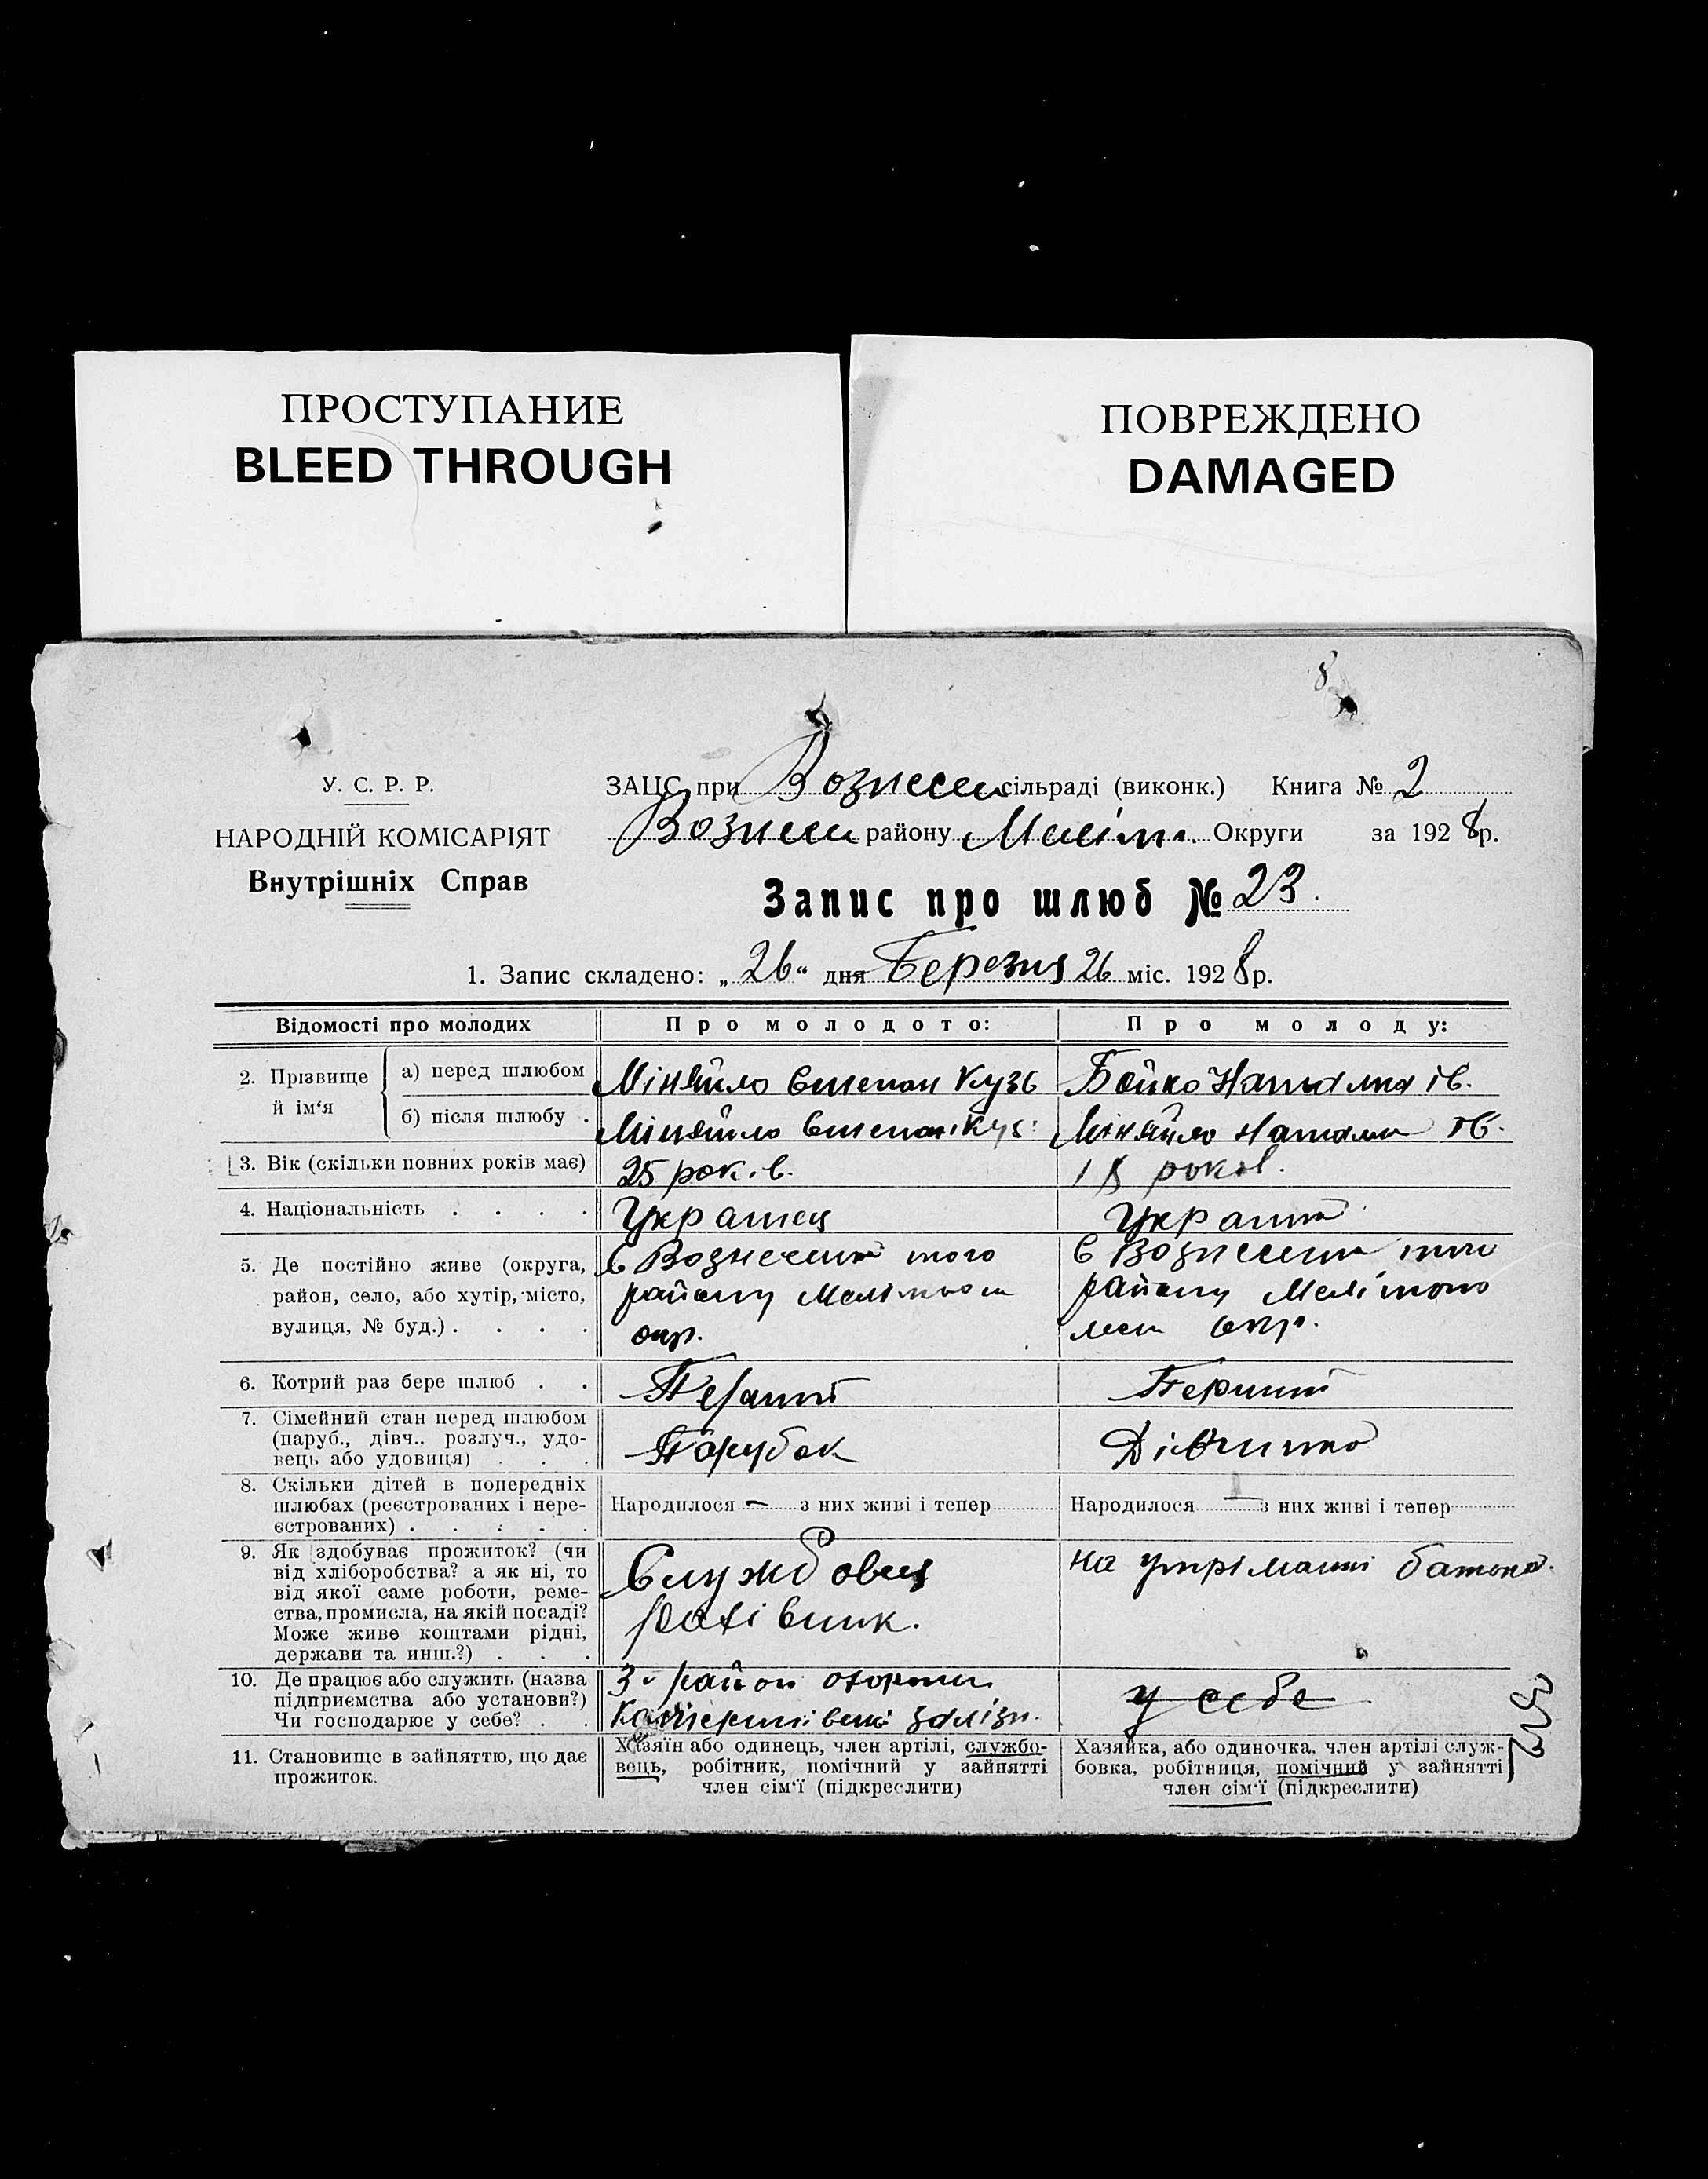 ПРОСТУПАНИЕ
BLEED THROUGH
ПОВРЕЖДЕНО
DAMAGED
8
У. С. Р. Р.
НАРОДНІЙ КОМІСАРІЯТ
Внутрішніх Справ
ЗАЦС при Вознесен сільраді (виконк.) Книга № 2
Вознесен району Меліт. Округи за 1928 р.
Запис про шлюб № 23.
1. Запис складено: „26“ дня Березня 26 міс. 1928 р.
Відомості про молодих
Про молодого:
Про молоду:
2. Прізвище й ім‘я
а) перед шлюбом
Міняйло Степан Кузь
Бойко Наталка Ів.
б) після шлюбу .
Міняйло Степан Куз:
Міняйло Натал Ів.
3. Вік (скільки повних років має)
25 років.
18 років.
4. Національність . . . .
Українец
Українка
5. Де постійно живе (округа,
район, село, або хутір, місто,
вулиця, № буд.) . . . .
С Вознесенка того
району Мелітопол
окр.
С Вознесенка того
району Мелітопо
лськ окр.
6. Котрий раз бере шлюб . .
Перший
Перший
7. Сімейний стан перед шлюбом
(паруб., дівч., розлуч., удо-
вець або удовиця) . . .
Парубок
Дівчина
8. Скільки дітей в попередніх
шлюбах (реєстрованих і нере-
єстрованих) . . . . .
Народилося — з них живі і тепер
Народилося — з них живі і тепер
9. Як здобуває прожиток? (чи
від хліборобства? а як ні, то
від якої саме роботи, реме-
ства, промисла, на якій посаді?
Може живе коштами рідні,
держави та инш.?) . . .
Службовец
на утріманні батька.
10. Де працює або служить (назва
підприємства або установи?)
Чи господарює у себе? . .
3й район охорони
залізн.
у себе
11. Становище в зайняттю, що дає
прожиток.
Хазяїн або одинець, член артілі, службо-
вець, робітник, помічний у зайнятті
член сім‘ї (підкреслити)
Хазяйка, або одиночка, член артілі служ-
бовка, робітниця, помічний у зайнятті
член сім‘ї (підкреслити)